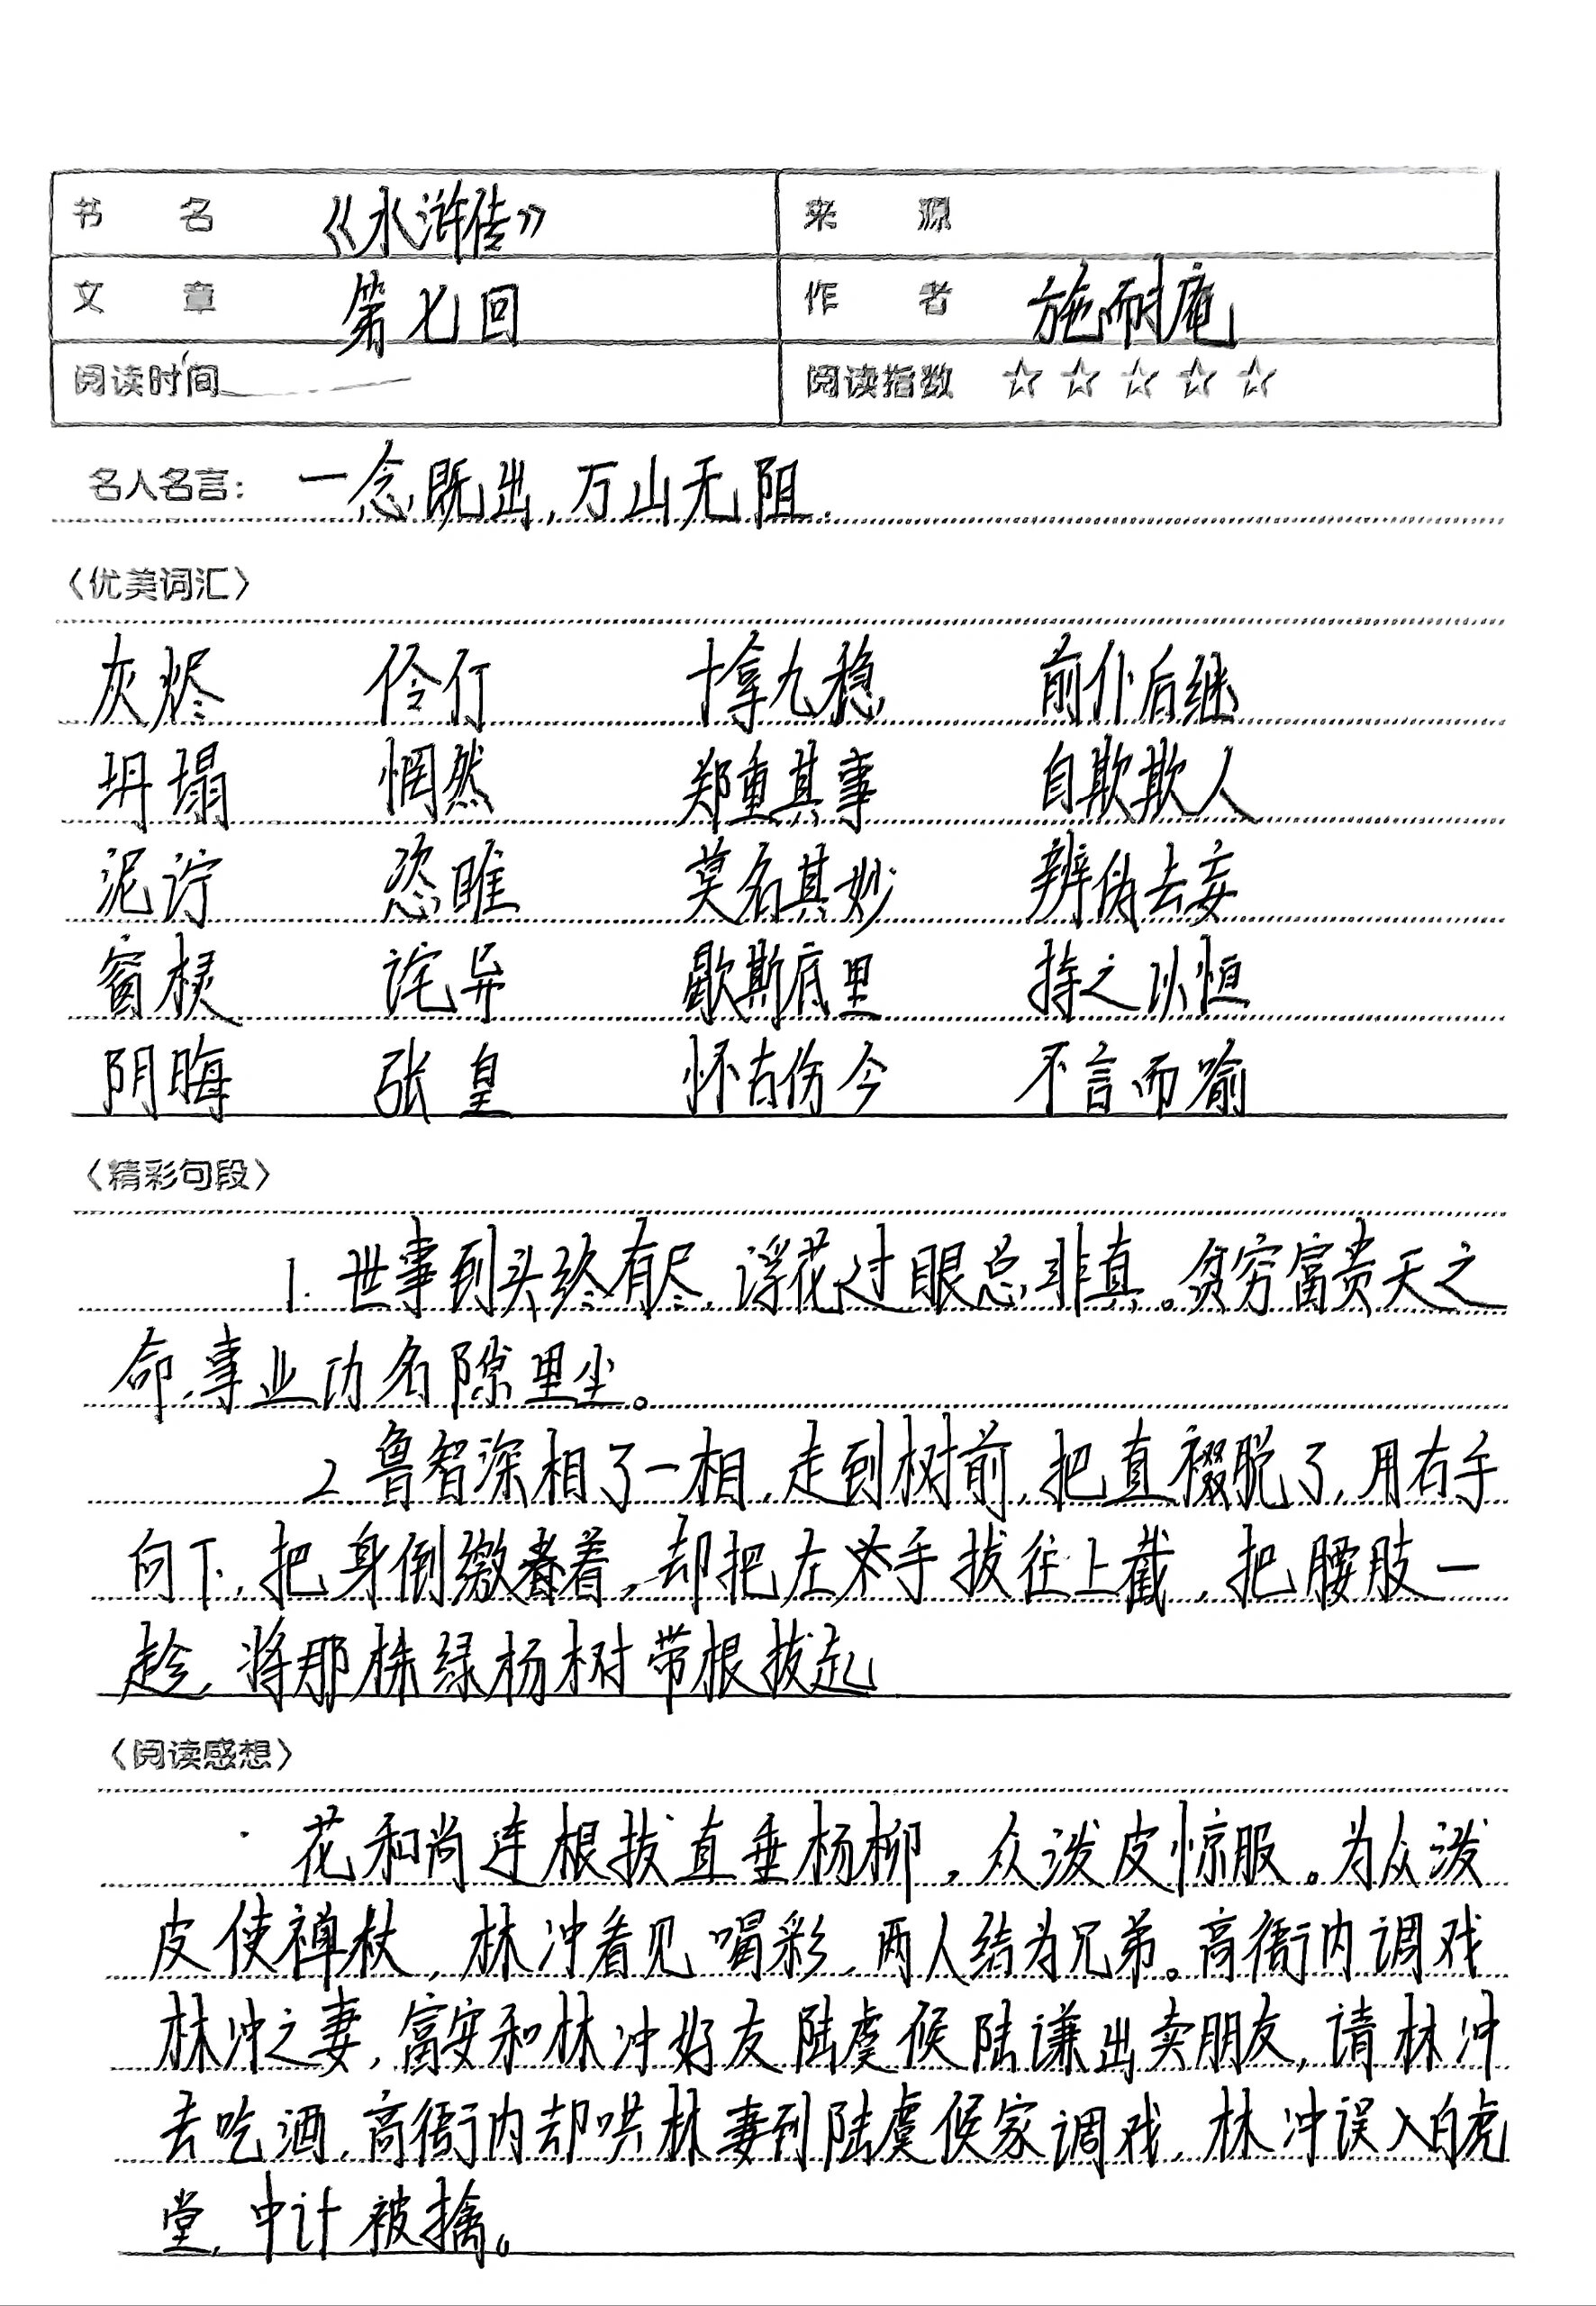 书 名 《水浒传》 来 源
文 章 第七回 作 者 施耐庵
阅读时间 阅读指数 ☆ ☆ ☆ ☆ ☆
名人名言: 一念既出,万山无阻.
〈优美词汇〉
灰烬 伶仃 十拿九稳 前仆后继
坍塌 惘然 郑重其事 自欺欺人
泥泞 恣睢 莫名其妙 辨伪去妄
窗棂 诧异 歇斯底里 持之以恒
阴晦 张皇 怀古伤今 不言而喻
〈精彩句段〉
1. 世事到头终有尽,浮花过眼总非真。贫穷富贵天之
命,事业功名隙里尘。
2. 鲁智深相了一相,走到树前,把直裰脱了,用右手
向下,把身倒缴着,却把左手拔往上截,把腰肢一
趁,将那株绿杨树带根拔起
〈阅读感想〉
花和尚连根拔直垂杨柳,众泼皮惊服。为众泼
皮使禅杖,林冲看见喝彩,两人结为兄弟。高衙内调戏
林冲之妻,富安和林冲好友陆虞候陆谦出卖朋友,请林冲
去吃酒,高衙内却哄林妻到陆虞候家调戏,林冲误入白虎
堂,中计被擒。